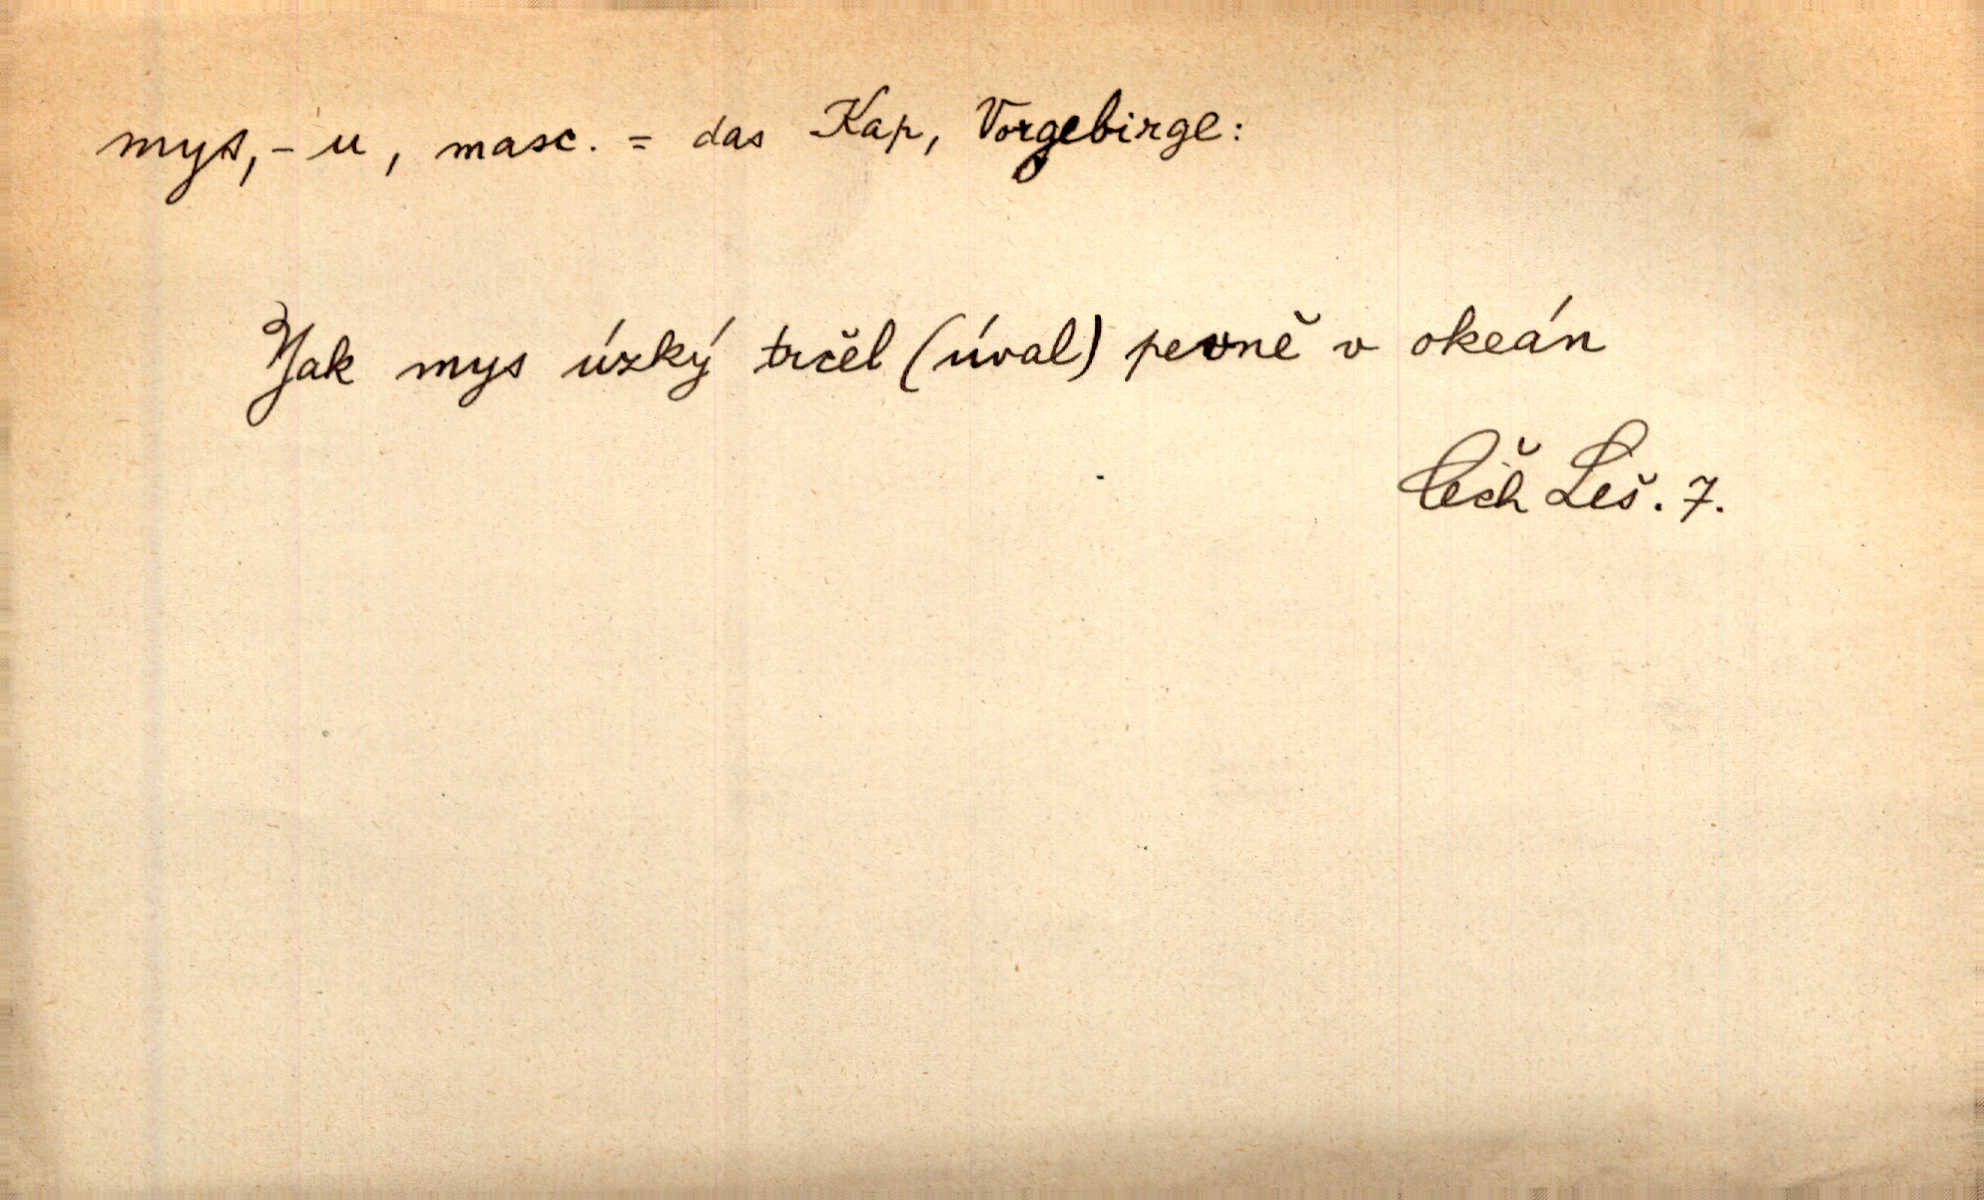 mys, -u, masc. = das Kap, Vorgebirge:
Jak mys úzký trčěl (úval) pevně v okeán
Čech Leš. 7.